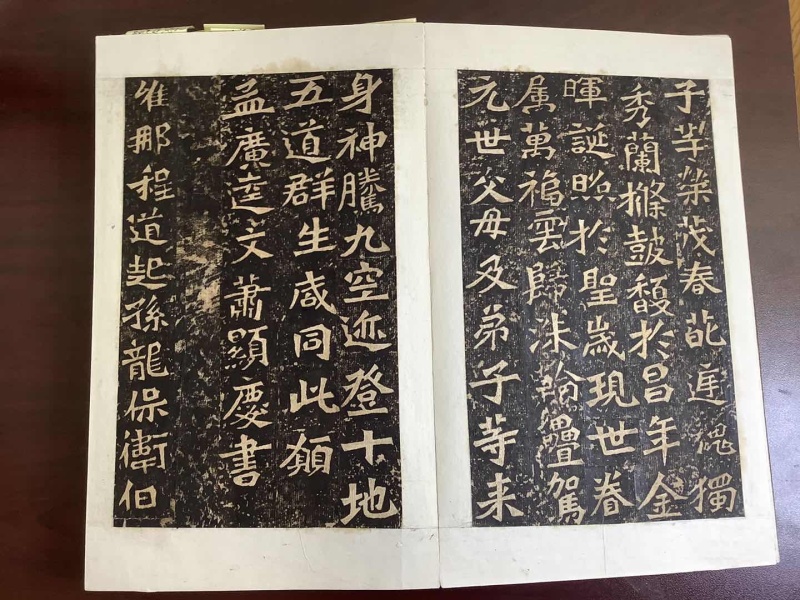 子等榮茂春葩庭槐獨
秀蘭條鼓馥於昌年金
暉誕照於聖歲現世眷
属萬福雲歸洙輪疊駕
元世父母及弟子等来
身神騰九空迹登十地
五道群生咸同此願
孟廣達文蕭顯慶書
唯那程道起孫龍保衛伯